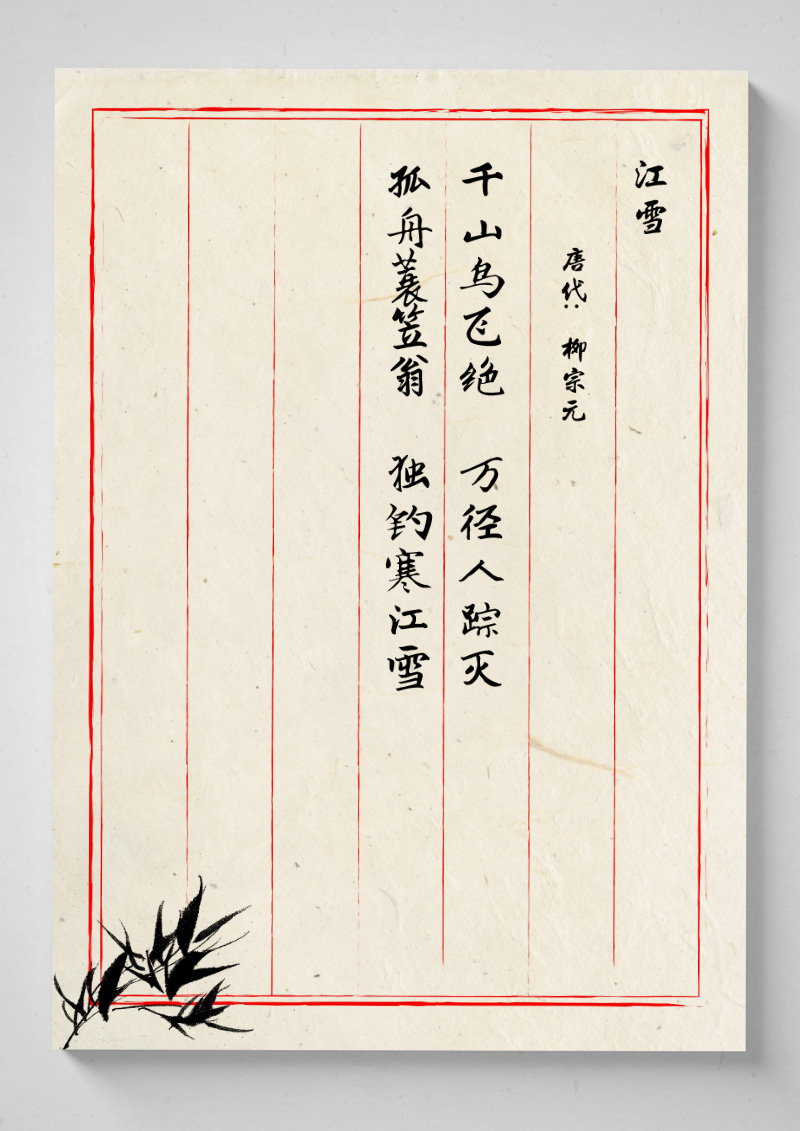 江雪
唐代：柳宗元
千山鸟飞绝 万径人踪灭
孤舟蓑笠翁 独钓寒江雪